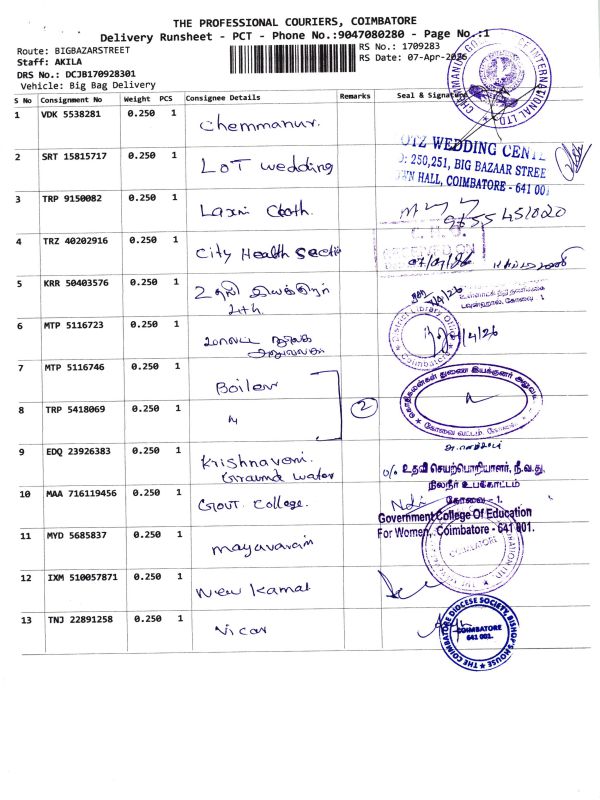 THE PROFESSIONAL COURIERS, COIMBATORE
Delivery Runsheet - PCT - Phone No.:9047080280 - Page No.:1
Route: BIGBAZARSTREET
RS No.: 1709283
Staff: AKILA
RS Date: 07-Apr-2026
DRS No.: DCJB170928301
Vehicle: Big Bag Delivery
S No Consignment No Weight PCS Consignee Details Remarks Seal & Signature
1 VDK 5538281 0.250 1 Chemmanur.
2 SRT 15815717 0.250 1 LOT wedding
OTZ WEDDING CENT
: 250,251, BIG BAZAAR STREE
WN HALL, COIMBATORE - 641 001
3 TRP 9150082 0.250 1 Laxmi Cloth.
4 TRZ 40202916 0.250 1 City Health Section
RECEIVED ON
07/04/26
5 KRR 50403576 0.250 1
4th.
6 MTP 5116723 0.250 1
District Library Officer
Coimbatore
7 MTP 5116746 0.250 1 Boiler
8 TRP 5418069 0.250 1 2
9 EDQ 23926383 0.250 1 Krishnaveni.
Ground water
உதவி செயற்பொறியாளர், நீ.வ.து.
நிலநீர் உபகோட்டம்
கோவை - 1.
10 MAA 716119456 0.250 1 Govt. College.
Government College Of Education
For Women, Coimbatore - 641 001.
11 MYD 5685837 0.250 1 mayavaram
COIMBATORE
12 IXM 510057871 0.250 1 New Kamal
13 TNJ 22891258 0.250 1 Vicar
THE COIMBATORE DIOCESE SOCIETY, BISHOP'S HOUSE
COIMBATORE
641 001.